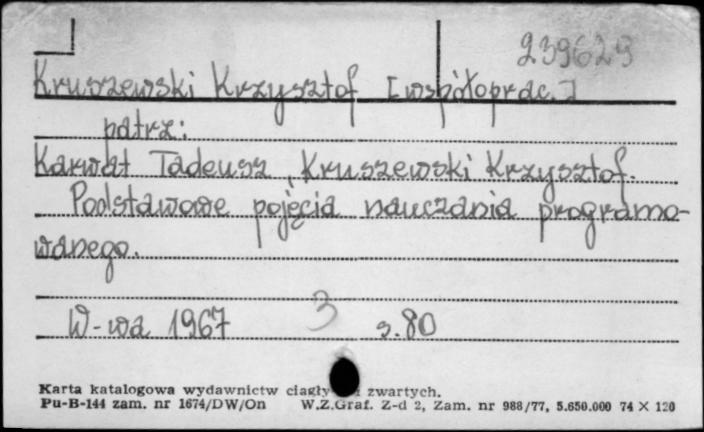 239629
Kruszewski Krzysztof [współoprac.]
patrz:
Karwat Tadeusz, Kruszewski Krzysztof.
Podstawowe pojęcia nauczania programo-
wanego.
W-wa 1967 3 s. 80
Karta katalogowa wydawnictw ciągły i zwartych.
Pu-B-144 zam. nr 1674/DW/On W.Z.Graf. Z-d 2, Zam. nr 988/77, 5.650.000 74 X 120